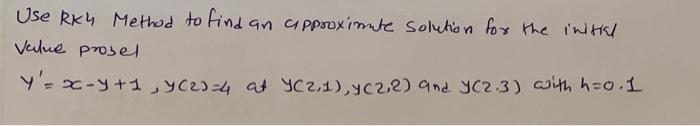 Use RK4 Method to find an approximate solution for the initial
Value prosel
y' = x-y+1 , y(2)=4 at y(2,1), y(2,2) and y(2.3) with h=0.1